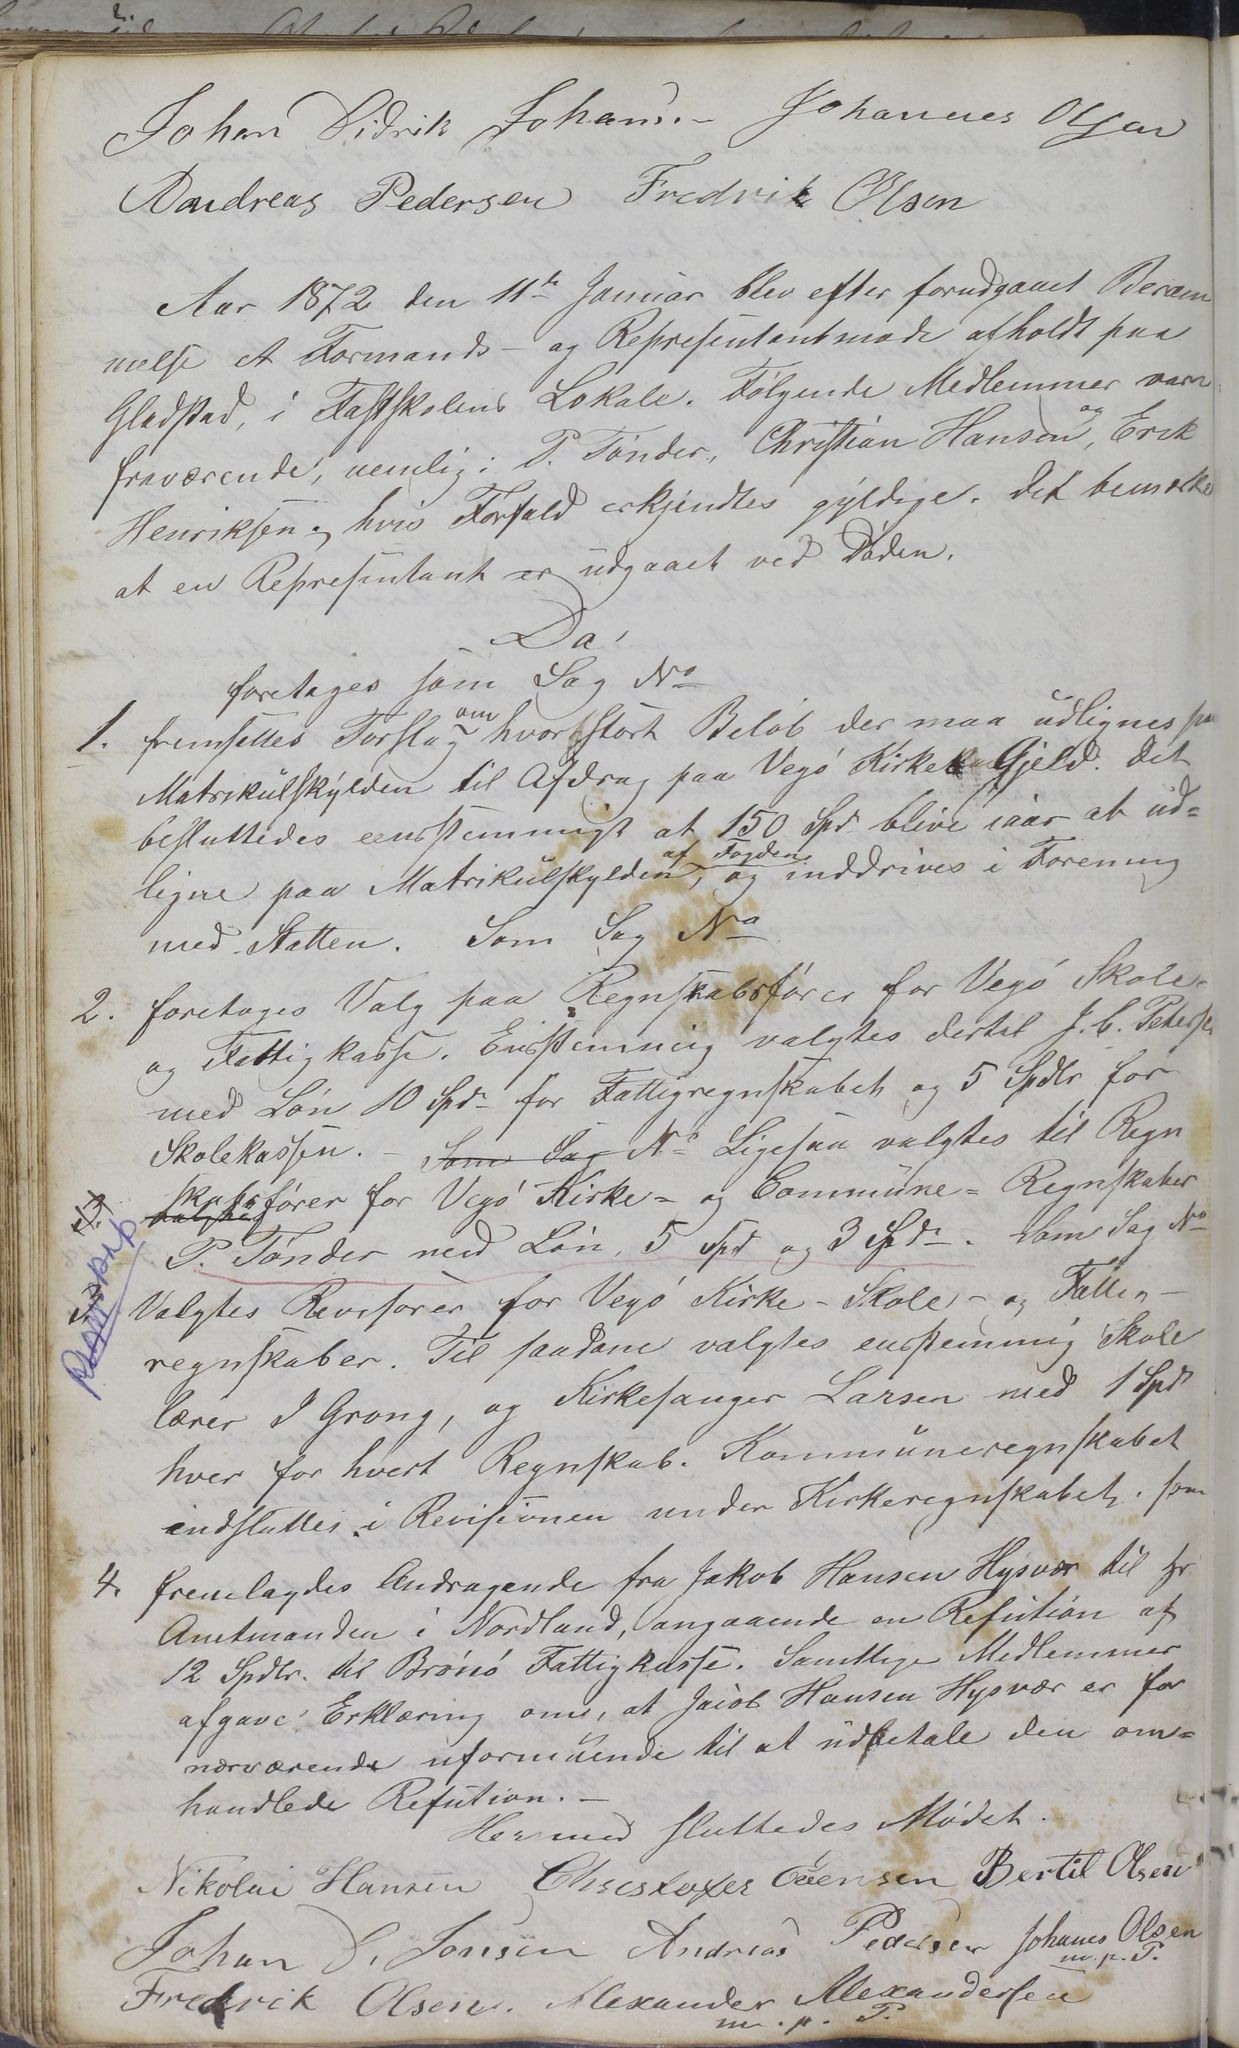 Johan Didrik Johans.- Johannes Olsen
Andreas Pedersen Fredrik Olsen
Aar 1872 den 11te Januar blev efter forudgaaet Beram
melse et Formands- og Repræsentantmøde afholdt paa
Gladstad, i Fastskolens Lokale. Følgende Medlemmer vare
fraværende, nemlig: P. Tønder, Christian Hansen og, Erik
Henriksen, hvis Forfald erkjendtes gyldige. Det bemærkes
at en Repræsentant er udgaaet ved Døden.
Da!
foretages som Sag No
1. fremsattes Forslag om hvor stort Beløb der maa udlignes paa
Matrikulskylden til Afdrag paa Vegø Kirkes Gjeld. Det
besluttedes eenstemmigt at 150 Spd blive iaar at ud=
ligne paa Matrikulskylden, og af Fogden inddrives i Forening
med Skatten. Som Sag No
2. foretages Valg paa Regnskabsfører for Vegø Skole-
og Fattigkasse. Enstemmig valgtes dertil J. C. Petersen
med Løn 10 Spd. for Fattigregnskabet og 5 Spdlr for
Skolekassen. - Som Sag No Ligesaa valgtes til Regn
skabsfører for Vegø Kirke- og Commune- Regnskaber
P. Tønder med Løn, 5 Spd og 3 Spd. Som Sag No
3. Valgtes Revisorer for Vegø Kirke- Skole- og Fattig-
Regnskap
regnskaber. Til saadane valgtes enstemmig Skole
lærer I Grong, og Kirkesanger Larsen med 1 Spd
hver for hvert Regnskab. Kommuneregnskabet
indsluttes i Revisionen under Kirkeregnskabet. som
4. fremlagdes Andragende fra Jakob Hansen Hysvær til Hr
Amtmanden i Nordland, angaaende en Refution af
12 Spdlr. til Brønø Fattigkasse. Samtlige Medlemmer
afgave Erklæring om, at Jacob Hansen Hysvær er for
nærværende uformuende til at udbetale den om=
handlede Refution. -
Hermed sluttedes Mødet.
Nikolai Hansen Christofer Evensen Bertil Olsen
Johan D. Jonsen Andreas Pedersen Johanes Olsen
m. p. P.
Fredrik Olsen. Alexander Alexandersen
m. p. P.